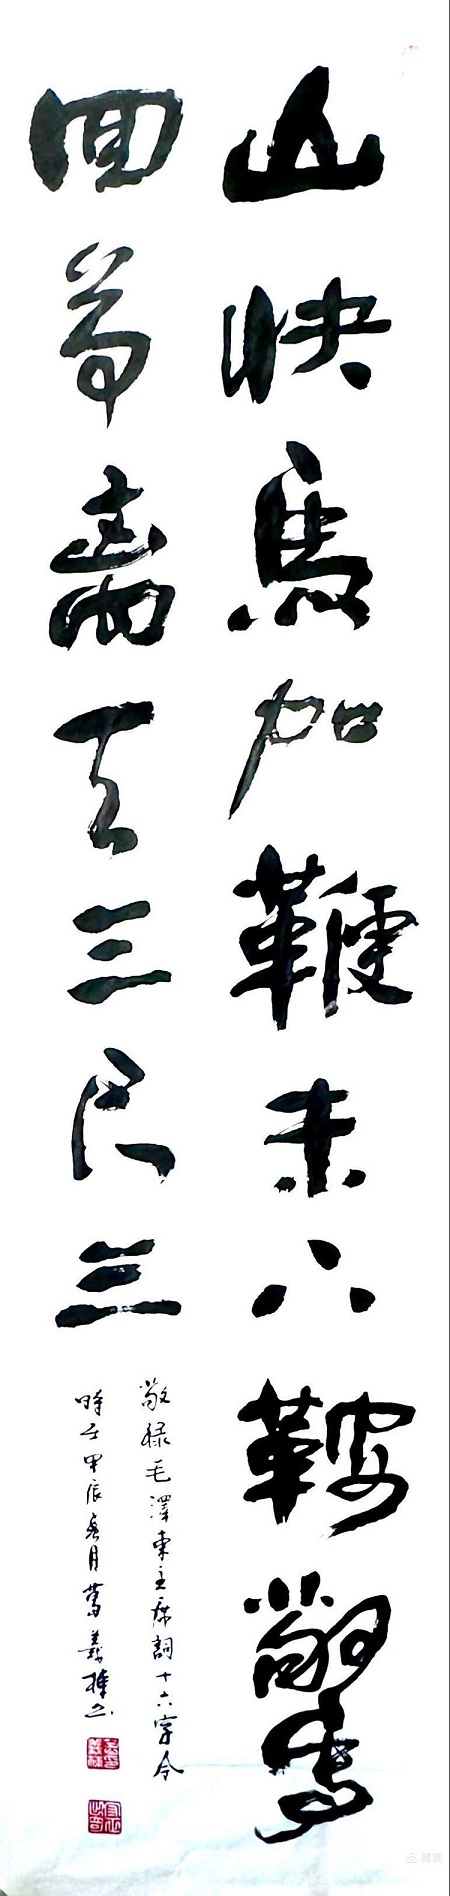 山快馬加鞭未下鞍驚
回首离天三尺三
敬録毛澤東主席詞十六字令
時在甲辰春月
美篇